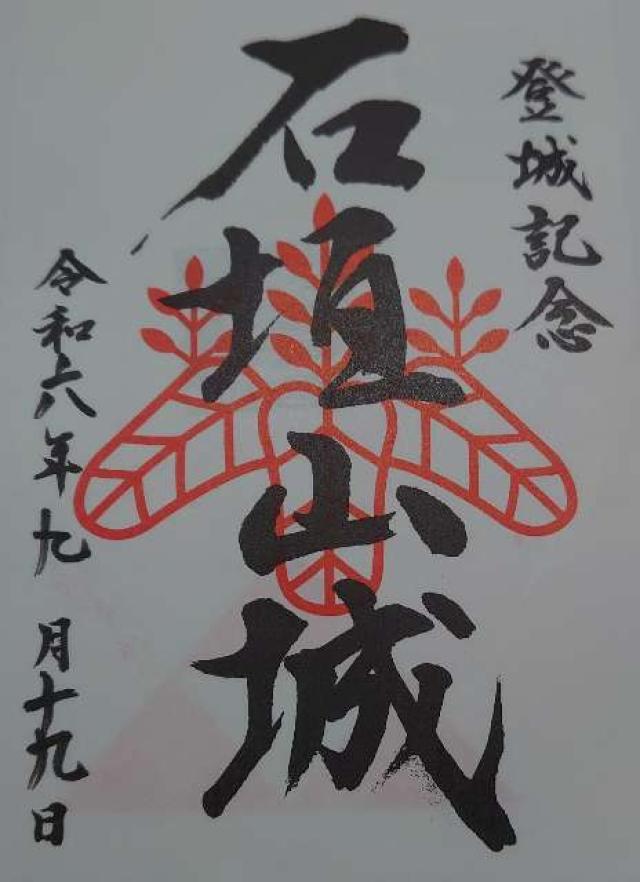 登城記念
石垣山城
令和六年九月十九日